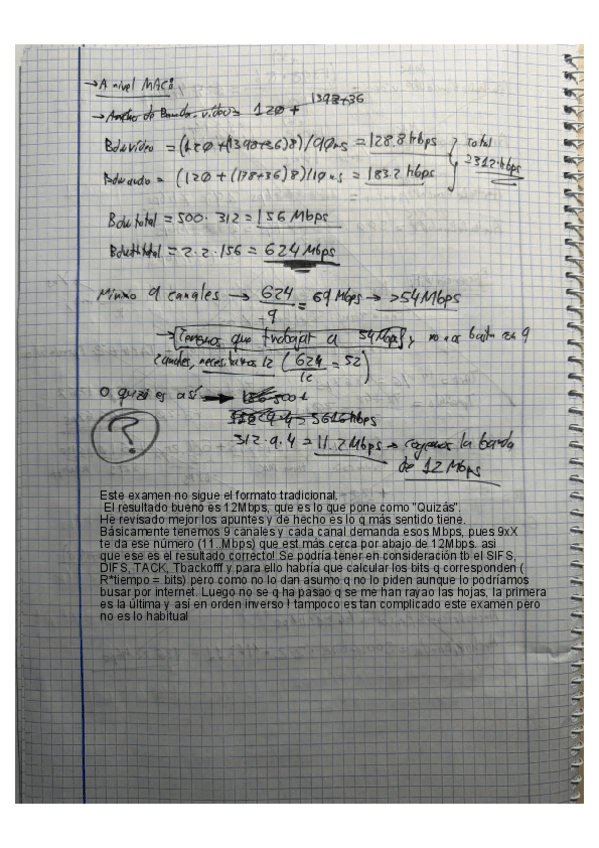 → A nivel MAC:
→ Ancho de Banda video = 120 + 1398+36
Bdw video = (120 + (1398+36)8)/90ms = 128.8 kbps } Total
Bdw audio = (120 + (178+36)8)/10ms = 183.2 kbps = 312 kbps
Bdw total = 500 · 312 = 156 Mbps
= 2 · 2 · 156 = 624 Mbps
Minimo 9 canales → 624/9 = 69 Mbps → >54Mbps
→ Tenemos que trabajar a 54Mbps y no nos basta con 9
canales, necesitamos 12 (624/12 = 52)
O quizá es así → 156·500
= 5616 kbps
?
312 · 9 · 4 = 11.2 Mbps → cogemos la banda
de 12 Mbps
Este examen no sigue el formato tradicional.
El resultado bueno es 12Mbps, que es lo que pone como "Quizás".
He revisado mejor los apuntes y de hecho es lo q más sentido tiene.
Básicamente tenemos 9 canales y cada canal demanda esos Mbps, pues 9xX
te da ese número (11..Mbps) que est más cerca por abajo de 12Mbps. asi
que ese es el resultado correcto! Se podría tener en consideración tb el SIFS,
DIFS, TACK, Tbackofff y para ello habría que calcular los bits q corresponden (
R*tiempo = bits) pero como no lo dan asumo q no lo piden aunque lo podríamos
busar por internet. Luego no se q ha pasao q se me han rayao las hojas, la primera
es la última y así en orden inverso ! tampoco es tan complicado este examen pero
no es lo habitual